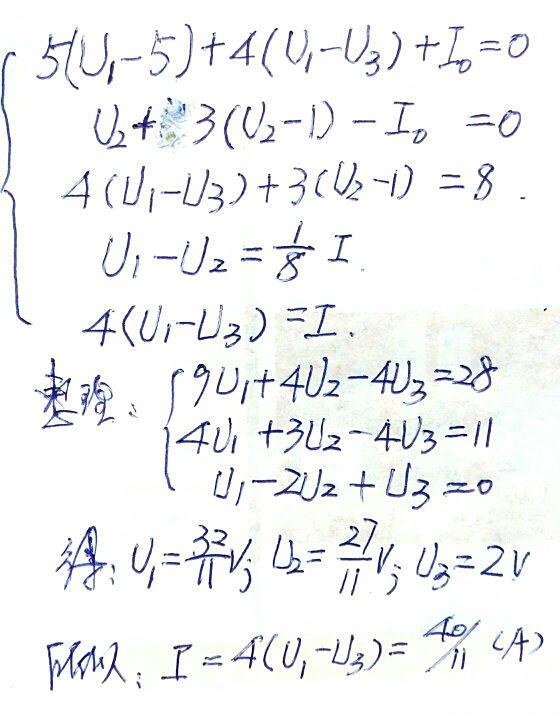 5(U₁-5)+4(U₁-U₃)+I₀=0
U₂+3(U₂-1)-I₀=0
4(U₁-U₃)+3(U₂-1)=8.
U₁-U₂=1/8 I.
4(U₁-U₃)=I.
整理: 9U₁+4U₂-4U₃=28
4U₁+3U₂-4U₃=11
U₁-2U₂+U₃=0
得: U₁=32/11V; U₂=27/11V; U₃=2V
所以: I=4(U₁-U₃)=40/11(A)